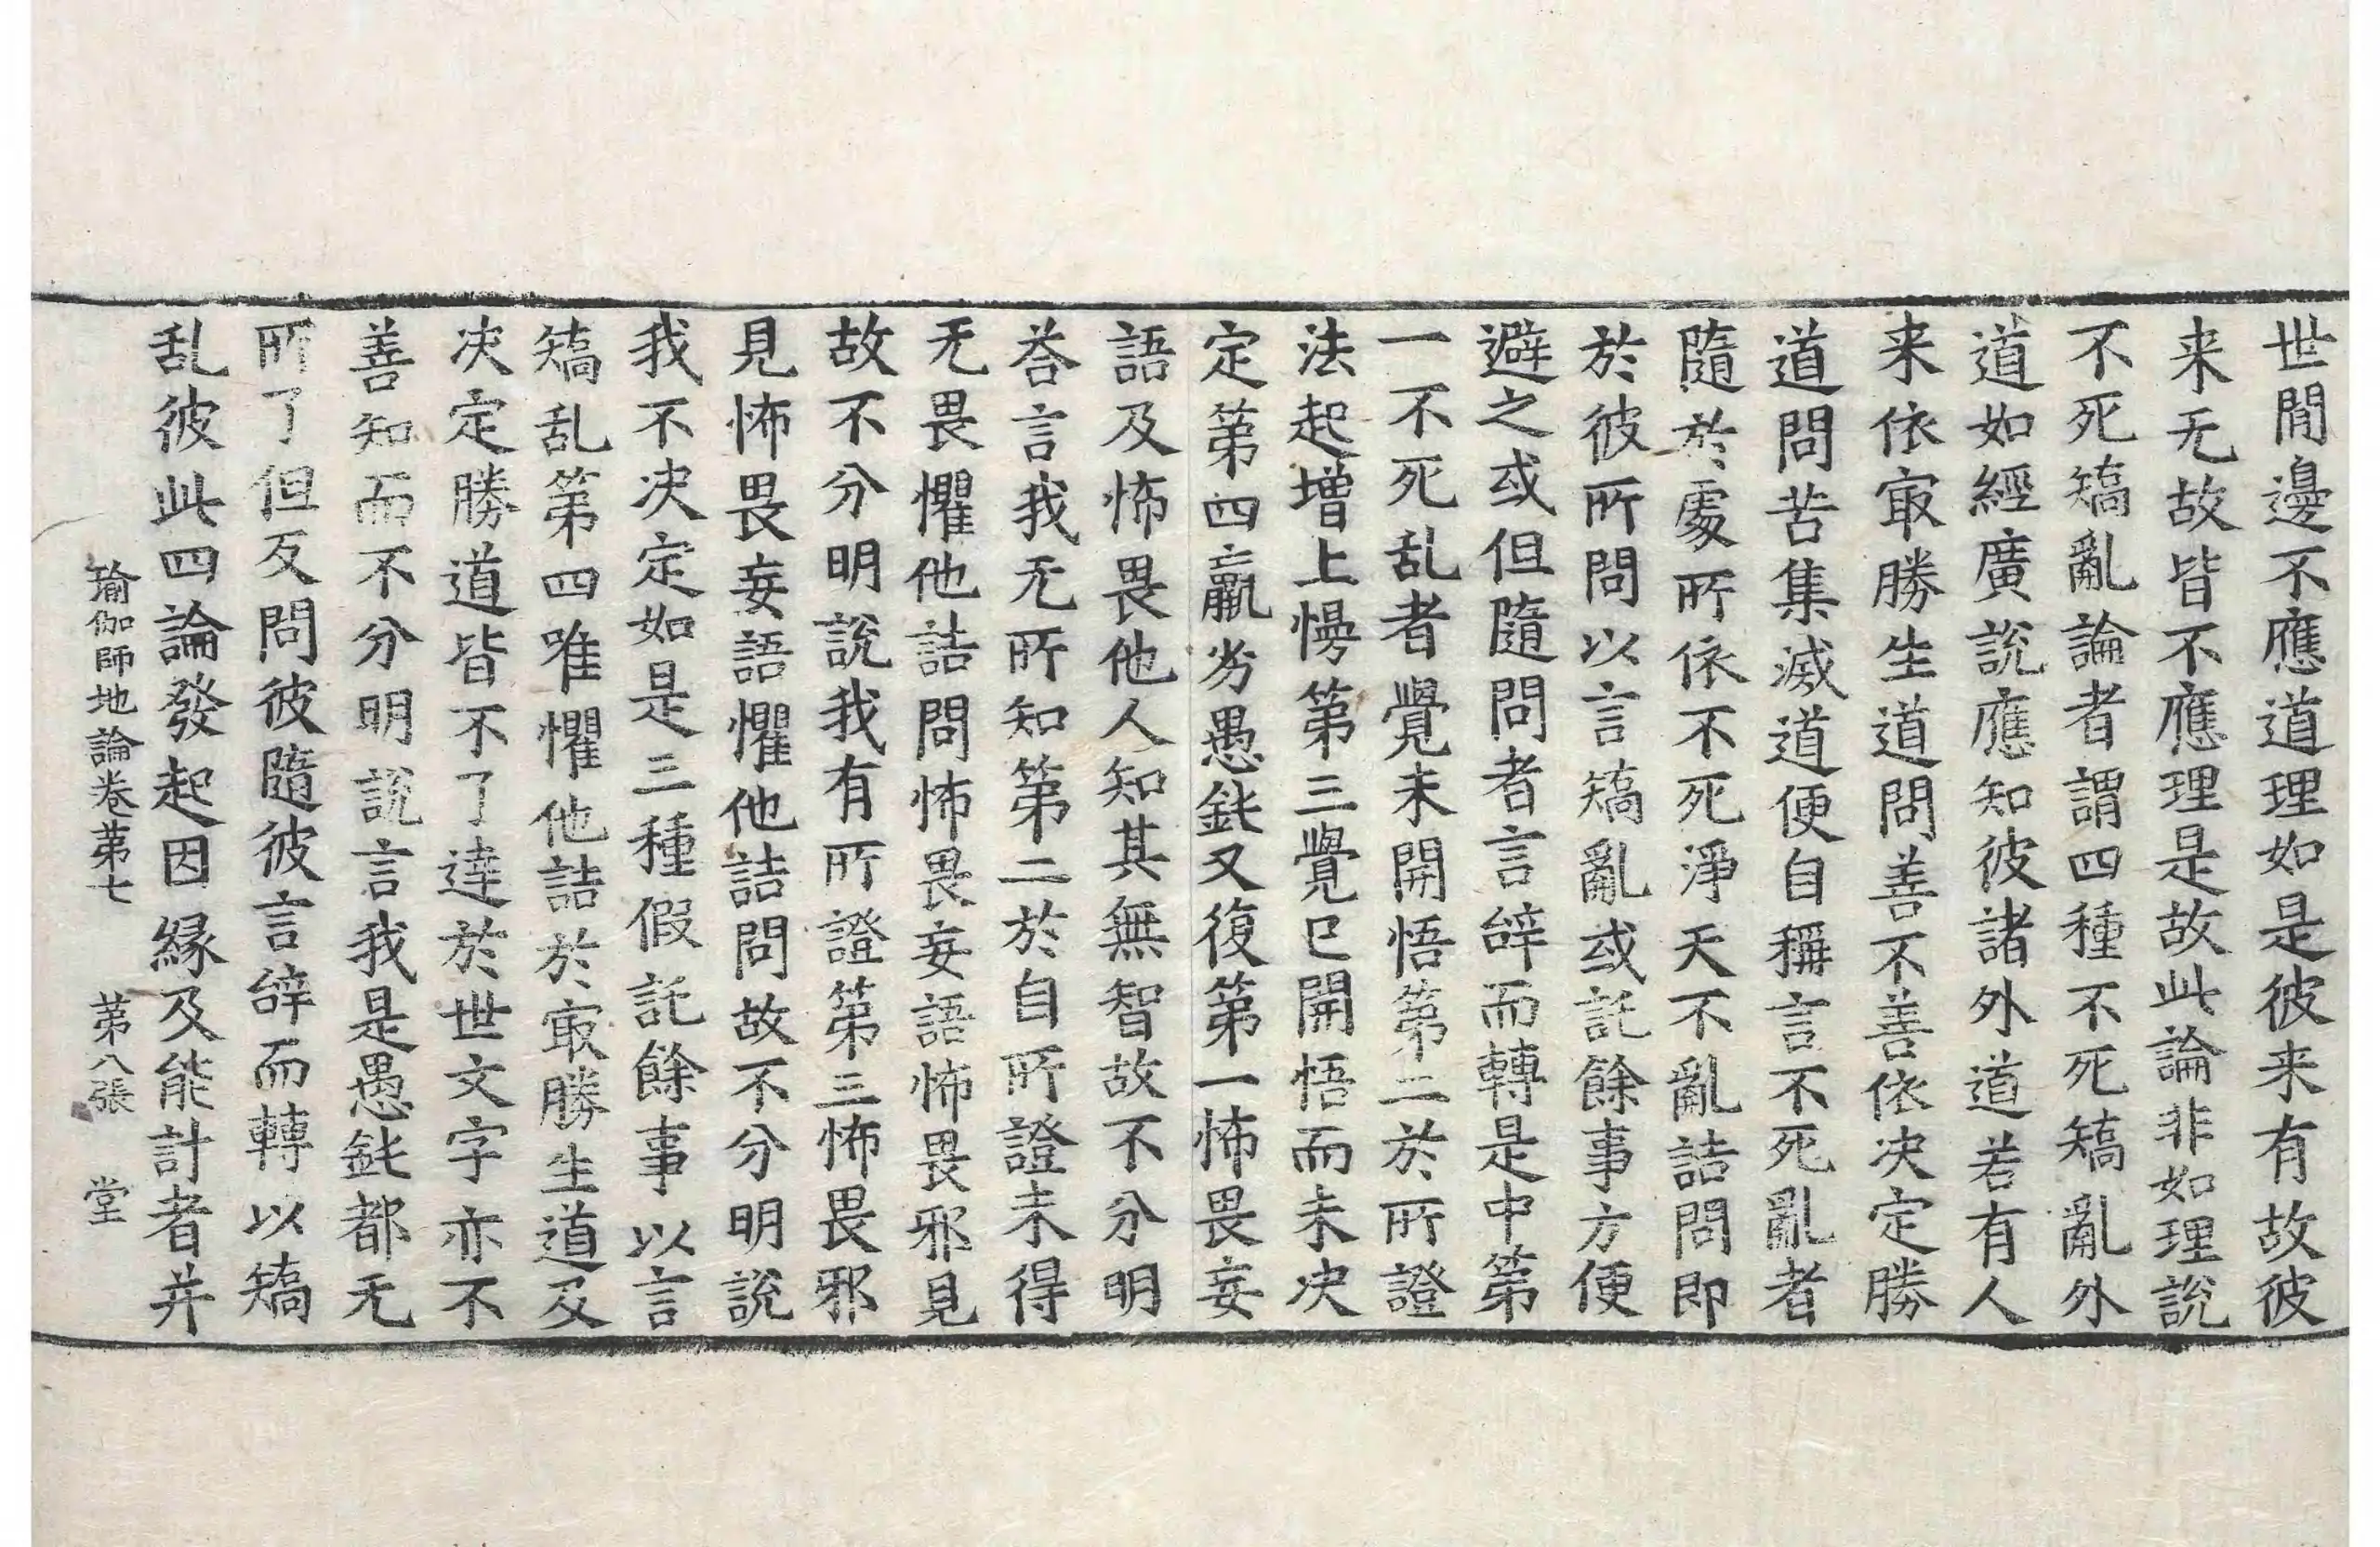 世閒邊不應道理如是彼来有故彼
来无故皆不應理是故此論非如理說
不死矯亂論者謂四種不死矯亂外
道如經廣說應知彼諸外道若有人
来依㝡勝生道問善不善依决定勝
道問苦集滅道便自稱言不死亂者
隨於處所依不死淨天不亂詰問即
於彼所問以言矯亂或託餘事方便
避之或但隨問者言辝而轉是中第
一不死乱者覺未開悟第二於所證
法起增上慢第三覺巳開悟而未决
定第四羸劣愚鈍又復第一怖畏妄
語及怖畏他人知其無智故不分明
荅言我无所知第二於自所證未得
无畏懼他詰問怖畏妄語怖畏邪見
故不分明說我有所證第三怖畏邪
見怖畏妄語懼他詰問故不分明說
我不决定如是三種假託餘事以言
矯乱第四唯懼他詰於㝡勝生道及
决定勝道皆不了達於世文字亦不
善知而不分明說言我是愚鈍都无
所了但反問彼隨彼言辝而轉以矯
乱彼此四論發起因緣及能計者并
瑜伽師地論卷苐七 苐八張 堂